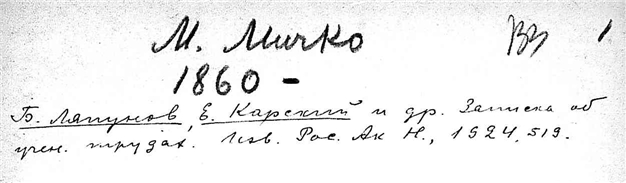 М. Мичко ВЗ 1
1860 -
Б. Ляпунов, Е. Карский и др. Записка об
учен. трудах. Изв. Рос. Ак Н., 1924, 519.